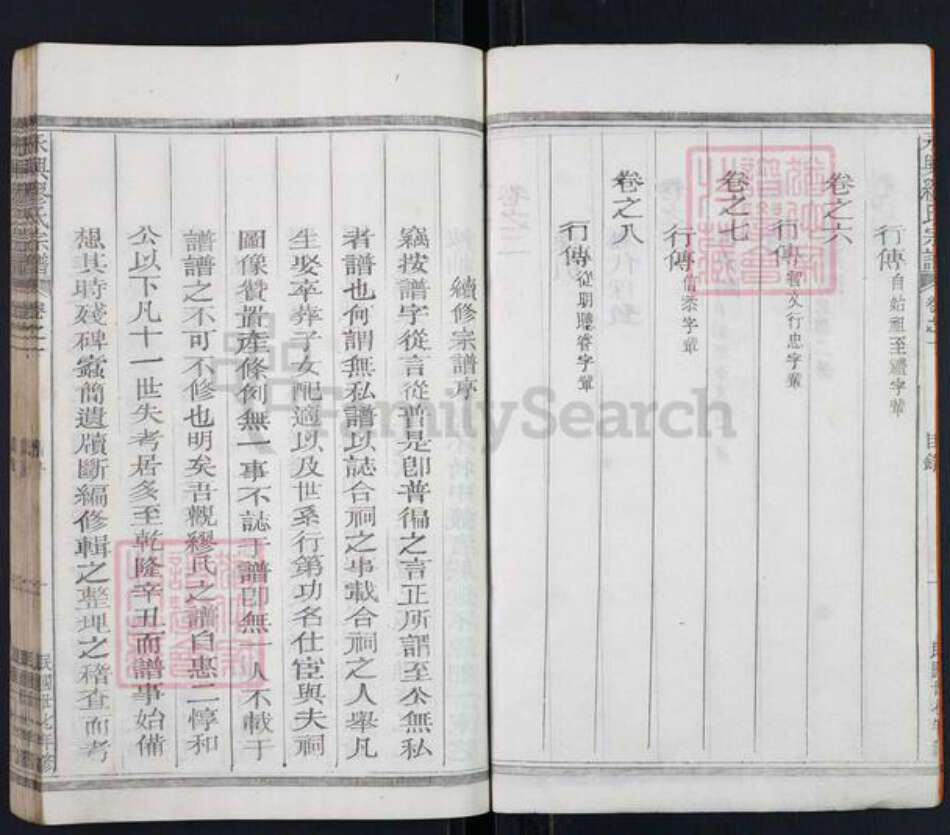 行傳自始祖至禮字輩
卷之六
行傳智文行忠字輩
卷之七
行傳信泰字輩
卷之八
行傳從明聰睿字輩
永興繆氏宗譜
目錄
續修宗譜序
竊按譜字從言從普是即普徧之言正所謂至公無私
者譜也何謂無私譜以誌合祠之事載合祠之人舉凡
生娶卒葬子女配適以及世系行第功名仕宦與夫祠
圖像贊置產條例無一事不誌于譜即無一人不載于
譜譜之不可不修也明矣吾觀繆氏之譜自惠二惇和
公以下凡十一世失考居多至乾隆辛丑而譜事始備
想其時殘碑蠹簡遺牘斷編修輯之整理之稽查而考
永興繆氏宗譜 卷之一
民國廿七年修
FamilySearch